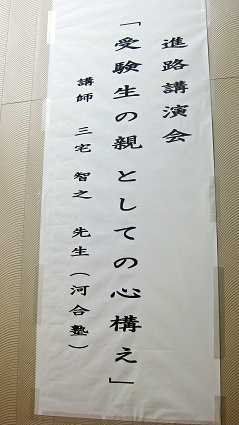 進路講演会
「受験生の親としての心構え」
講師 三宅 智之 先生(河合塾)